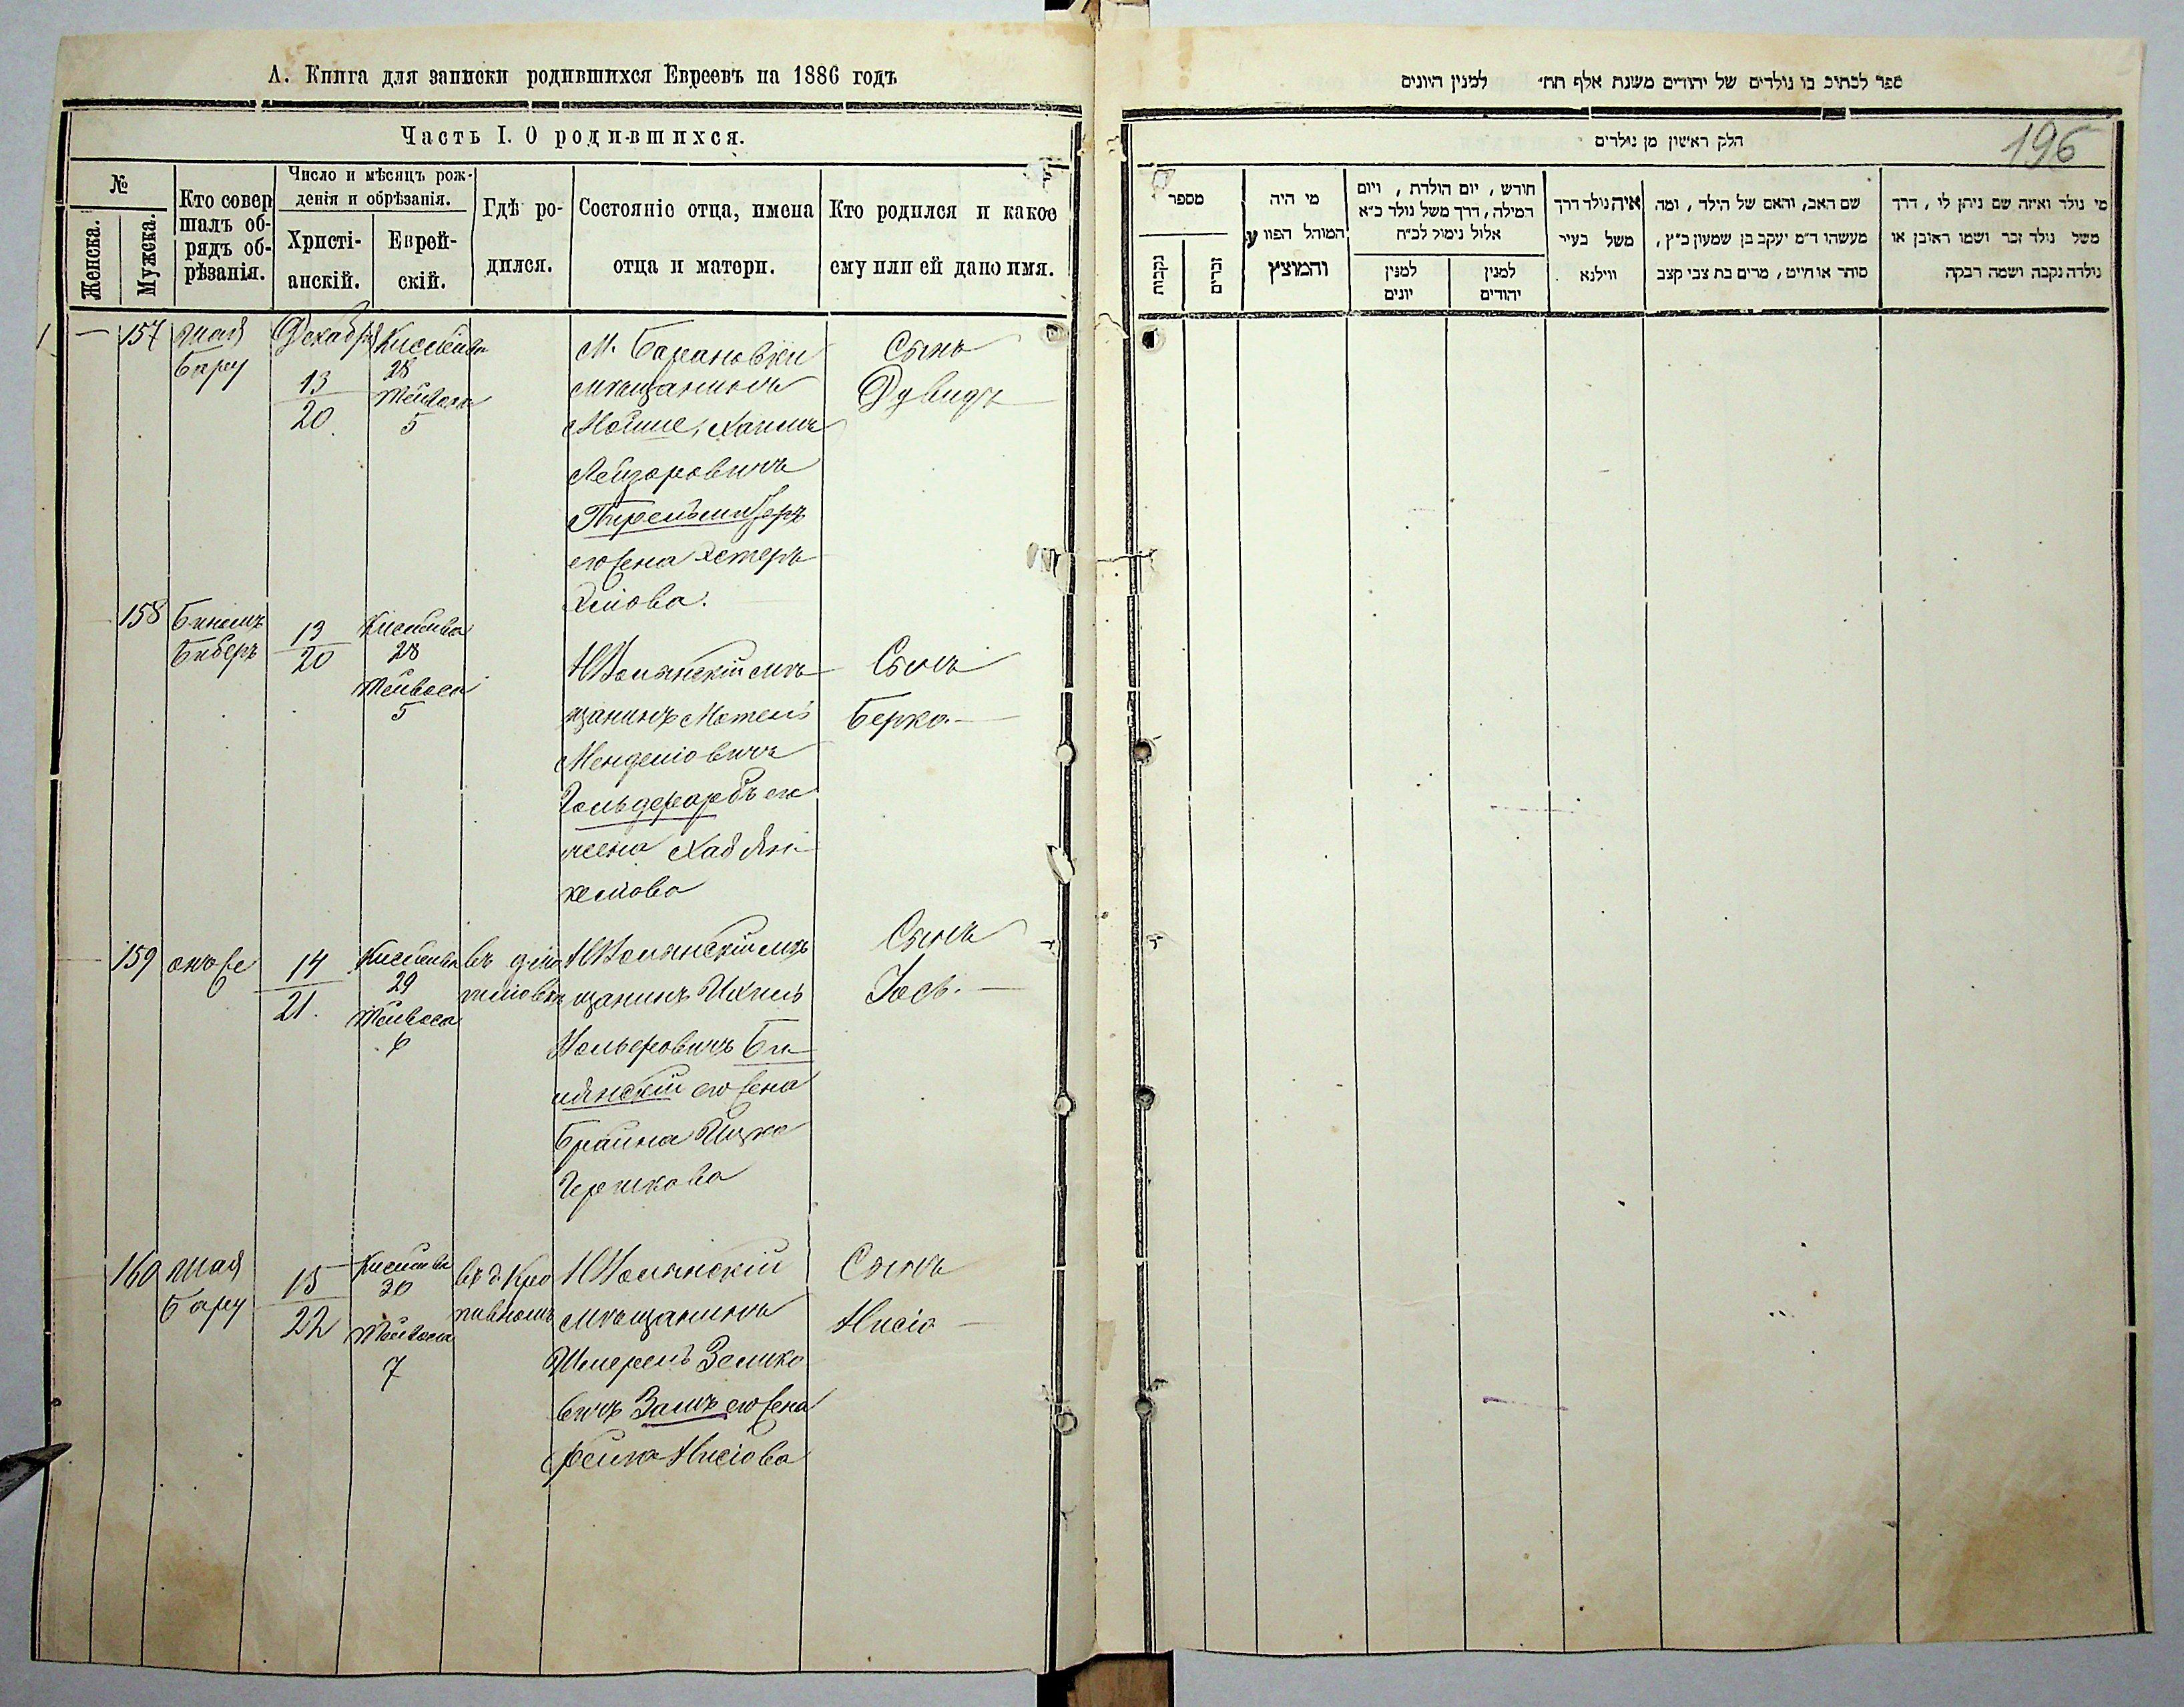 А. Книга для записки родившихся Евреевъ на 1886 годъ
Часть I. О родившихся.
№
Женска.
Мужска.
Кто совер
шалъ об-
рядъ об-
рѣзанія.
Число и мѣсяцъ рож-
денія и обрѣзанія.
Христі-
анскій.
Еврей-
скій.
Гдѣ ро-
дился.
Состояніе отца, имена
отца и матери.
Кто родился и какое
ему или ей дано имя.
1
157
Шая
Бару
Декабр
13
20
Кислива
28
Тейвоса
5
М. Барановки
мѣщанинъ
Мойше, Хаимъ
Лейзоровичъ
его жена Эстеръ
Сынъ
Дувидъ
158
Биномъ
Биберъ
13
20
Кислива
28
Тейвоса
5
щанинъ Мотель
Менделіовичъ
Гольдфарбъ его
жена Хая Ян-
келіова
Сынъ
Берко
159
онъ же
14
21.
Кислива
29
Тейвоса
6
щанинъ Ихиль
его жена
Брайна Ицко
Гершкова
Сынъ
Іось.
160
Шая
Бару
15
22
Кислива
30
Тейвоса
7
въ д. Кро
пивномъ
мѣщанинъ
Шмерель Зелико
вичъ Залцъ его жена
Фейга Нисіова
Сынъ
Нисіо
ספר לכתיב בו נולדים של יהודים משנת אלף תת׳ למנין היונים
חלק ראישון מן נולדים
196
מספר
נקבות
זכרים
מי היה
המוהל הפורע
והמוצץ
חודש, יום הולדת, ויום
המילה, דרך משל נולד כ״א
אלול נימול לכ״ח
למנין
יונים
למנין
יהודים
איה נולד דרך
משל בעיר
ווילנא
שם האב, והאם של הילד, ומה
מעשהו ד״מ יעקב בן שמעון כ״ץ,
סוחר או חייט, מרים בת צבי קצב
מי נולד ואיזה שם ניתן לו, דרך
משל נולד זכר ושמו ראובן או
נולדה נקבה ושמה רבקה